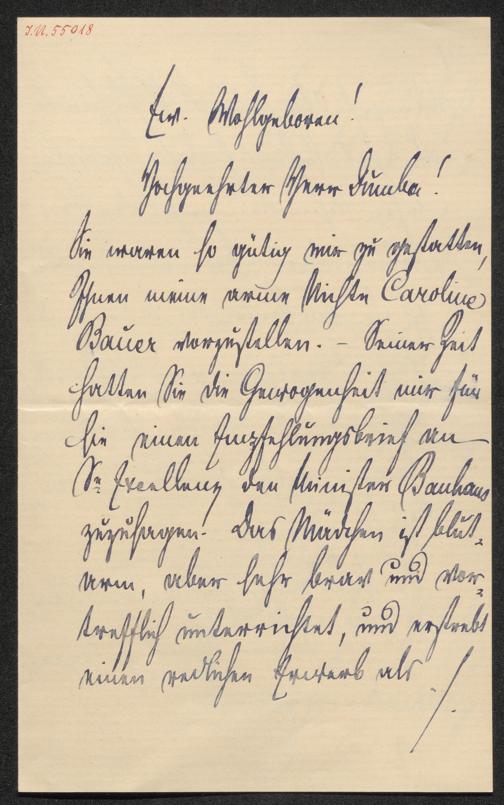 J.N. 55018
Ew. Wohlgeboren!
Hochgeehrter Herr Dumba!
Sie waren so gütig mir zu gestatten,
Ihnen meine arme Nichte Caroline
Bauer vorzustellen. – Seiner Zeit
hatten Sie die Gewogenheit mir für
sie einen Empfehlungsbrief an
Sr. Excellenz den Minister Banhans
zuzusagen. Das Mädchen ist blut-
arm, aber sehr brav und vor-
trefflich unterrichtet, und erstrebt
einen redlichen Erwerb als
./.